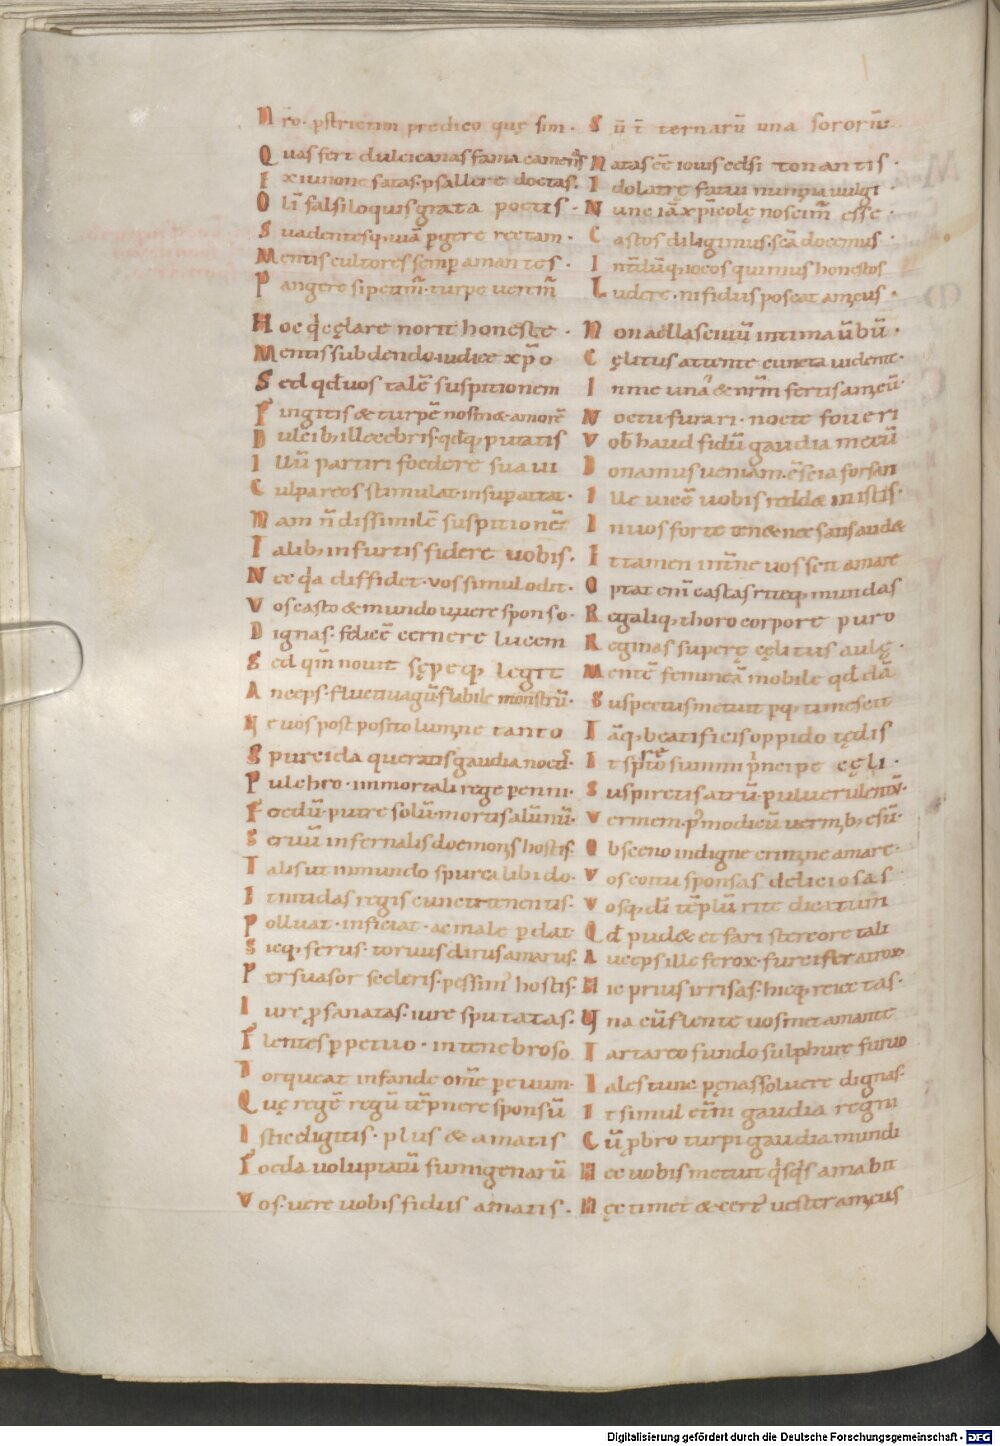 Nr̄o· pstrictim predico quę sim· Sūt ternarū una sororū
Quas fert dulcicanas fama camenas Natas eē iouis sed si tonantis·
Ex iunone satas· psallere doctas· Idolatrę fatu nunpia uulgi·
Olī falsiloquis grata poetis· Nunc iā xp̄icolę noscim̄ esse·
Suadentesq; uiā pgere rectam· Castos diligimus· scā docemus·
Mentis cultores semp amantes· Intdūq; iocos quimus honestos
Pangere si petim̄· turpe uerem̄ Ludere· ni fidus poscat amicus·
Hoc qd cęlare norit honeste· Non ad lasciuū intima ūbū·
Mentis subdendo iudice xp̄o Cęlitus attente cuncta uident·
Sed qd uos talē suspitionem In me unā & nrm̄ fertis amicū·
Fingitis & turpē nosm& amorē Noctu furari· nocte foueri
Dulcib; illecebris· qdq; putatis Vob haud fidū gaudia mecū
Illū partiri foedere sua ui Donamus ueniam· ē scia forsan
Culpa reos stimulat· insup attat· Ille uicē uobis reddat in istis·
Nam n̄ dissimilē suspitionē In uos forte ten& nec satis aud&
Talib; in furtis fidere uobis· Et tamen int̄ne uos scit amare
Nec qa diffidet· uos simul odit· Optat eni castas riteq; mundas
Vos casto & mundo uiuere sponso· Regaliq; thoro corpore puro
Dignas· felicē cernere lucem Reginas superę cęlitus aulę·
Sed qm̄ nouit sępe q; legit Mentē femineā mobile qddā
Anceps· fluctiuagū· flabile monstrū· Suspectus metuit pq; timescit
Ne uos post posito lumine tanto Tāq; beatificis oppido tędis
Spurcida queratis gaudia noct· It spreto summi pncipe cęli·
Pulchro· immortali rege perenni· Suspiretis atrū· puluerulentū·
Foedū· putre solū· mortis alūnū· Vermem· pmodicū uermib; esū·
Seruū infernalis doemonis hostis· Obsceno indigne crimine amare·
Talis ut inmundo spurca libido· Vos coitu sponsas deliciosas
Et nitidas regis cuncta tenentis· Vosq; di tēplū rite dicatum
Polluat· inficiat· ac male pdat· Qd pud& et fari stercore tali
Sicq; ferus· toruus dirus amarus· Aucepsille ferox· furcifer atrox
Persuasor sceleris· pessim hostis· Hic prius irrisas· hicq; reiectas·
Iure pfanatas· iure sputatas· Vna cū flente uosmet amante
Flentes ppetuo· in tenebroso Tartareo fundo sulphure furuo
Torqueat infande omē pe uum· Tales tunc pęnas soluere dignas·
Quę regē regū tēpnere sponsū Et simul etim gaudia regni
Istic digitis· plus & amatis Cū pbro turpi gaudia mundi
Foeda uoluptatū fumigenarū Hęc uobis metuit qsqs amabit
Vos· uere uobis fidus amatis· Hęc timet & cert uester amicus
Digitalisierung gefördert durch die Deutsche Forschungsgemeinschaft - DFG